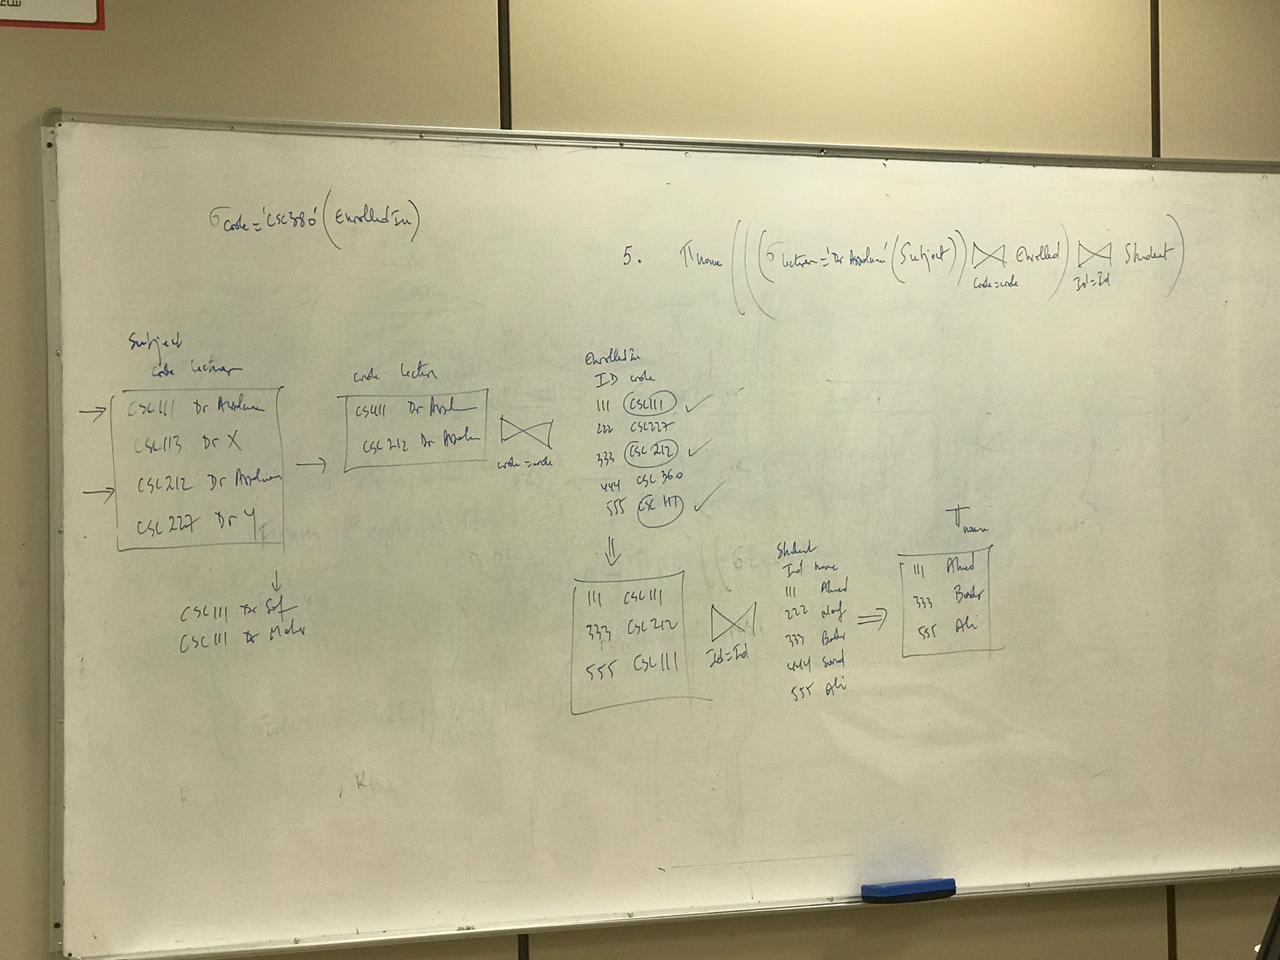 σ code='CSC380' (EnrolledIn)
5. π name (((σ lecturer='Dr (Subject)) ⋈ code=code Enrolled) ⋈ Id=Id Student)
Subject
code lecturer
CSC111 Dr
CSC113 Dr X
CSC212 Dr
CSC227 Dr Y
CSC111 Dr
CSC111 Dr
code lecturer
CSC111 Dr
CSC212 Dr
⋈
code=code
EnrolledIn
ID code
111 CSC111
222 CSC227
333 CSC212
444 CSC360
555 CSC111
111 CSC111
333 CSC212
555 CSC111
⋈
Id=Id
Student
Id name
111 Ahmed
222
333
444
555 Ali
π name
111 Ahmed
333
555 Ali